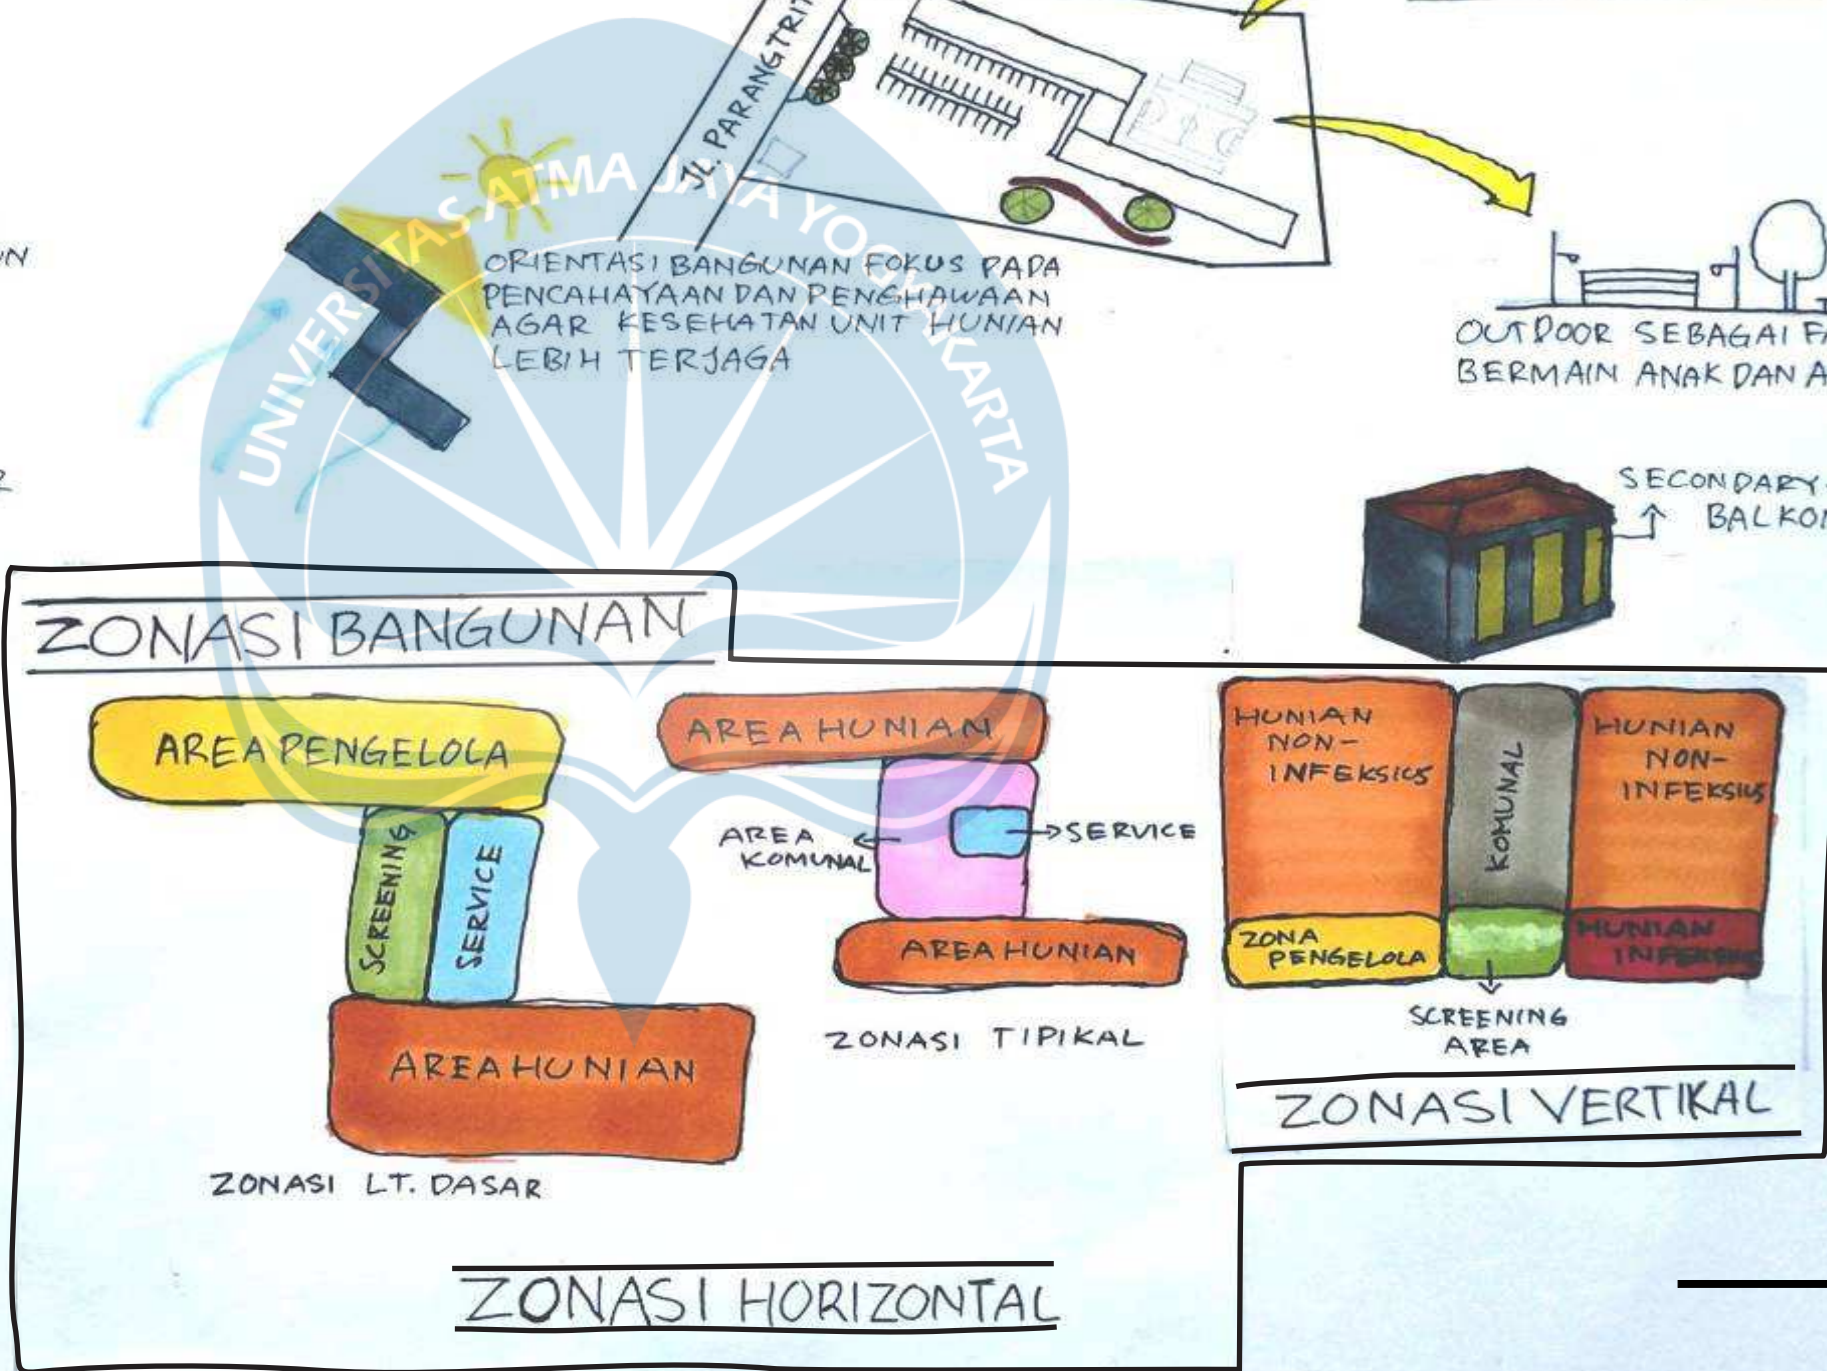 JL. PARANGTRIT
UNIVERSITAS ATMA JAYA YOGYAKARTA
ORIENTASI BANGUNAN FOKUS PADA
PENCAHAYAAN DAN PENGHAWAAN
AGAR KESEHATAN UNIT HUNIAN
LEBIH TERJAGA
OUTDOOR SEBAGAI FA
BERMAIN ANAK DAN A
SECONDARY
BALKON
ZONASI BANGUNAN
AREA PENGELOLA
SCREENING
SERVICE
AREA HUNIAN
ZONASI LT. DASAR
AREA HUNIAN
AREA
KOMUNAL
SERVICE
AREA HUNIAN
ZONASI TIPIKAL
HUNIAN
NON-
INFEKSIUS
KOMUNAL
HUNIAN
NON-
INFEKSIUS
ZONA
PENGELOLA
HUNIAN
INFEKSIUS
SCREENING
AREA
ZONASI VERTIKAL
ZONASI HORIZONTAL